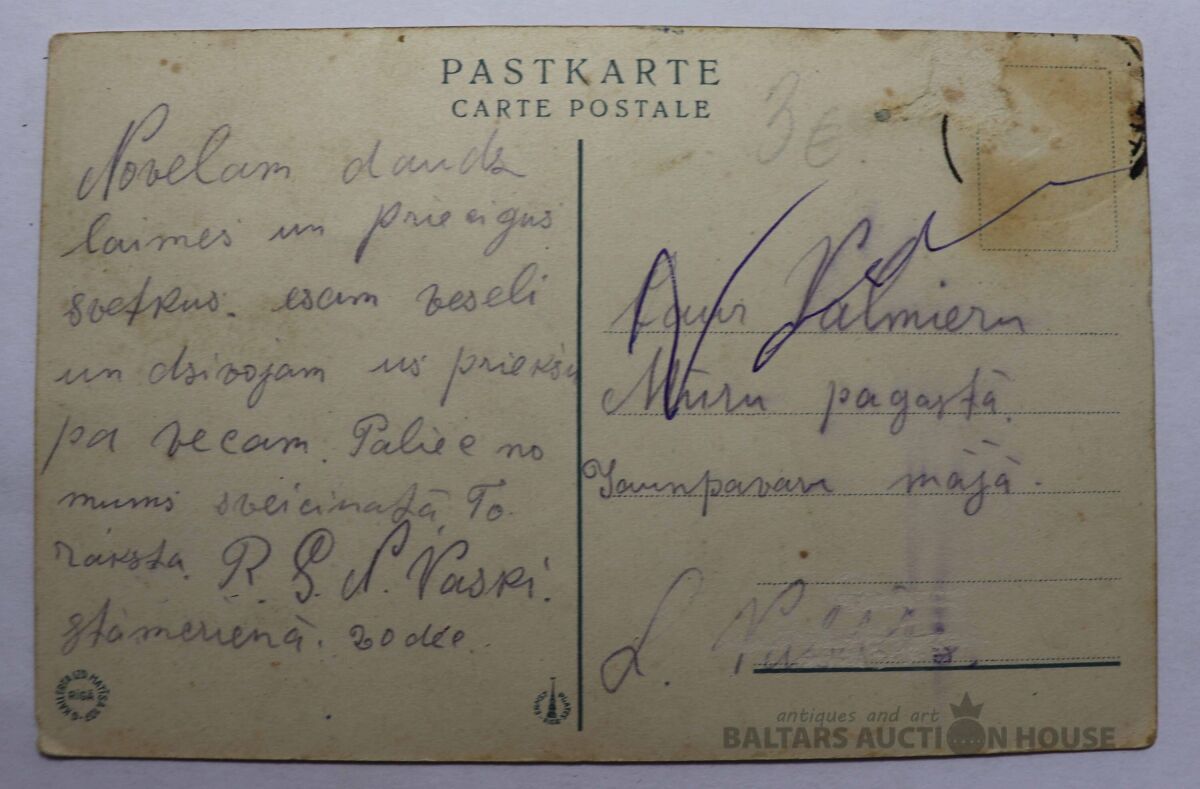 PASTKARTE
CARTE POSTALE
3 €.
Novelam daudz
laimes un priecigus
svetkus. esam veseli
un dzivojam us priekšu
pa vecam. Paliec no
mums sveicinatā, To
raksta R. G. N. Vaski.
stāmerienā. 20 dec.
caur Valmieru
Mūru pagastā.
Jaunpavaru mājā.
L.
RIGA
antiques and art
BALTARS AUCTION HOUSE